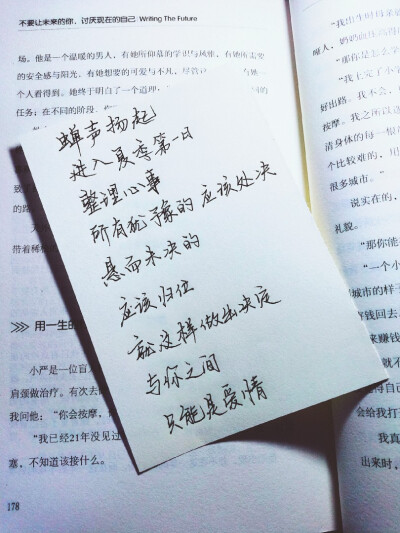 不要让未来的你，讨厌现在的自己 | Writing The Future
场。他是一个温暖的男人，有她所仰慕的学识与风雅，有她所需要
的安全感与阳光，有她想要的可爱与不凡，尽管
个人看得到。她终于明白了一个道理，
任务：在不同的阶段，
蝉声扬起
进入夏季第一日
整理心事
所有犹豫的 应该处决
悬而未决的
应该归位
就这样做出决定
与你之间
只能是爱情
带着稀
>>> 用一生的
小严是一位盲人
肩颈做治疗。有次去
我问他：“你会按摩，
“我已经21年没见过
塞，不知道该接什么。
178
“我出生时母亲
“那你是怎么学
“我上完了小学
好出路。我不会，
按摩。我之所以选
清身体的每一根
个比较难的，用
很多城市。”
说实在的，
礼貌。
“那你能
“一个小
城市的样子
好钱回去
来赚钱
得
会给我打
我真
出来时，